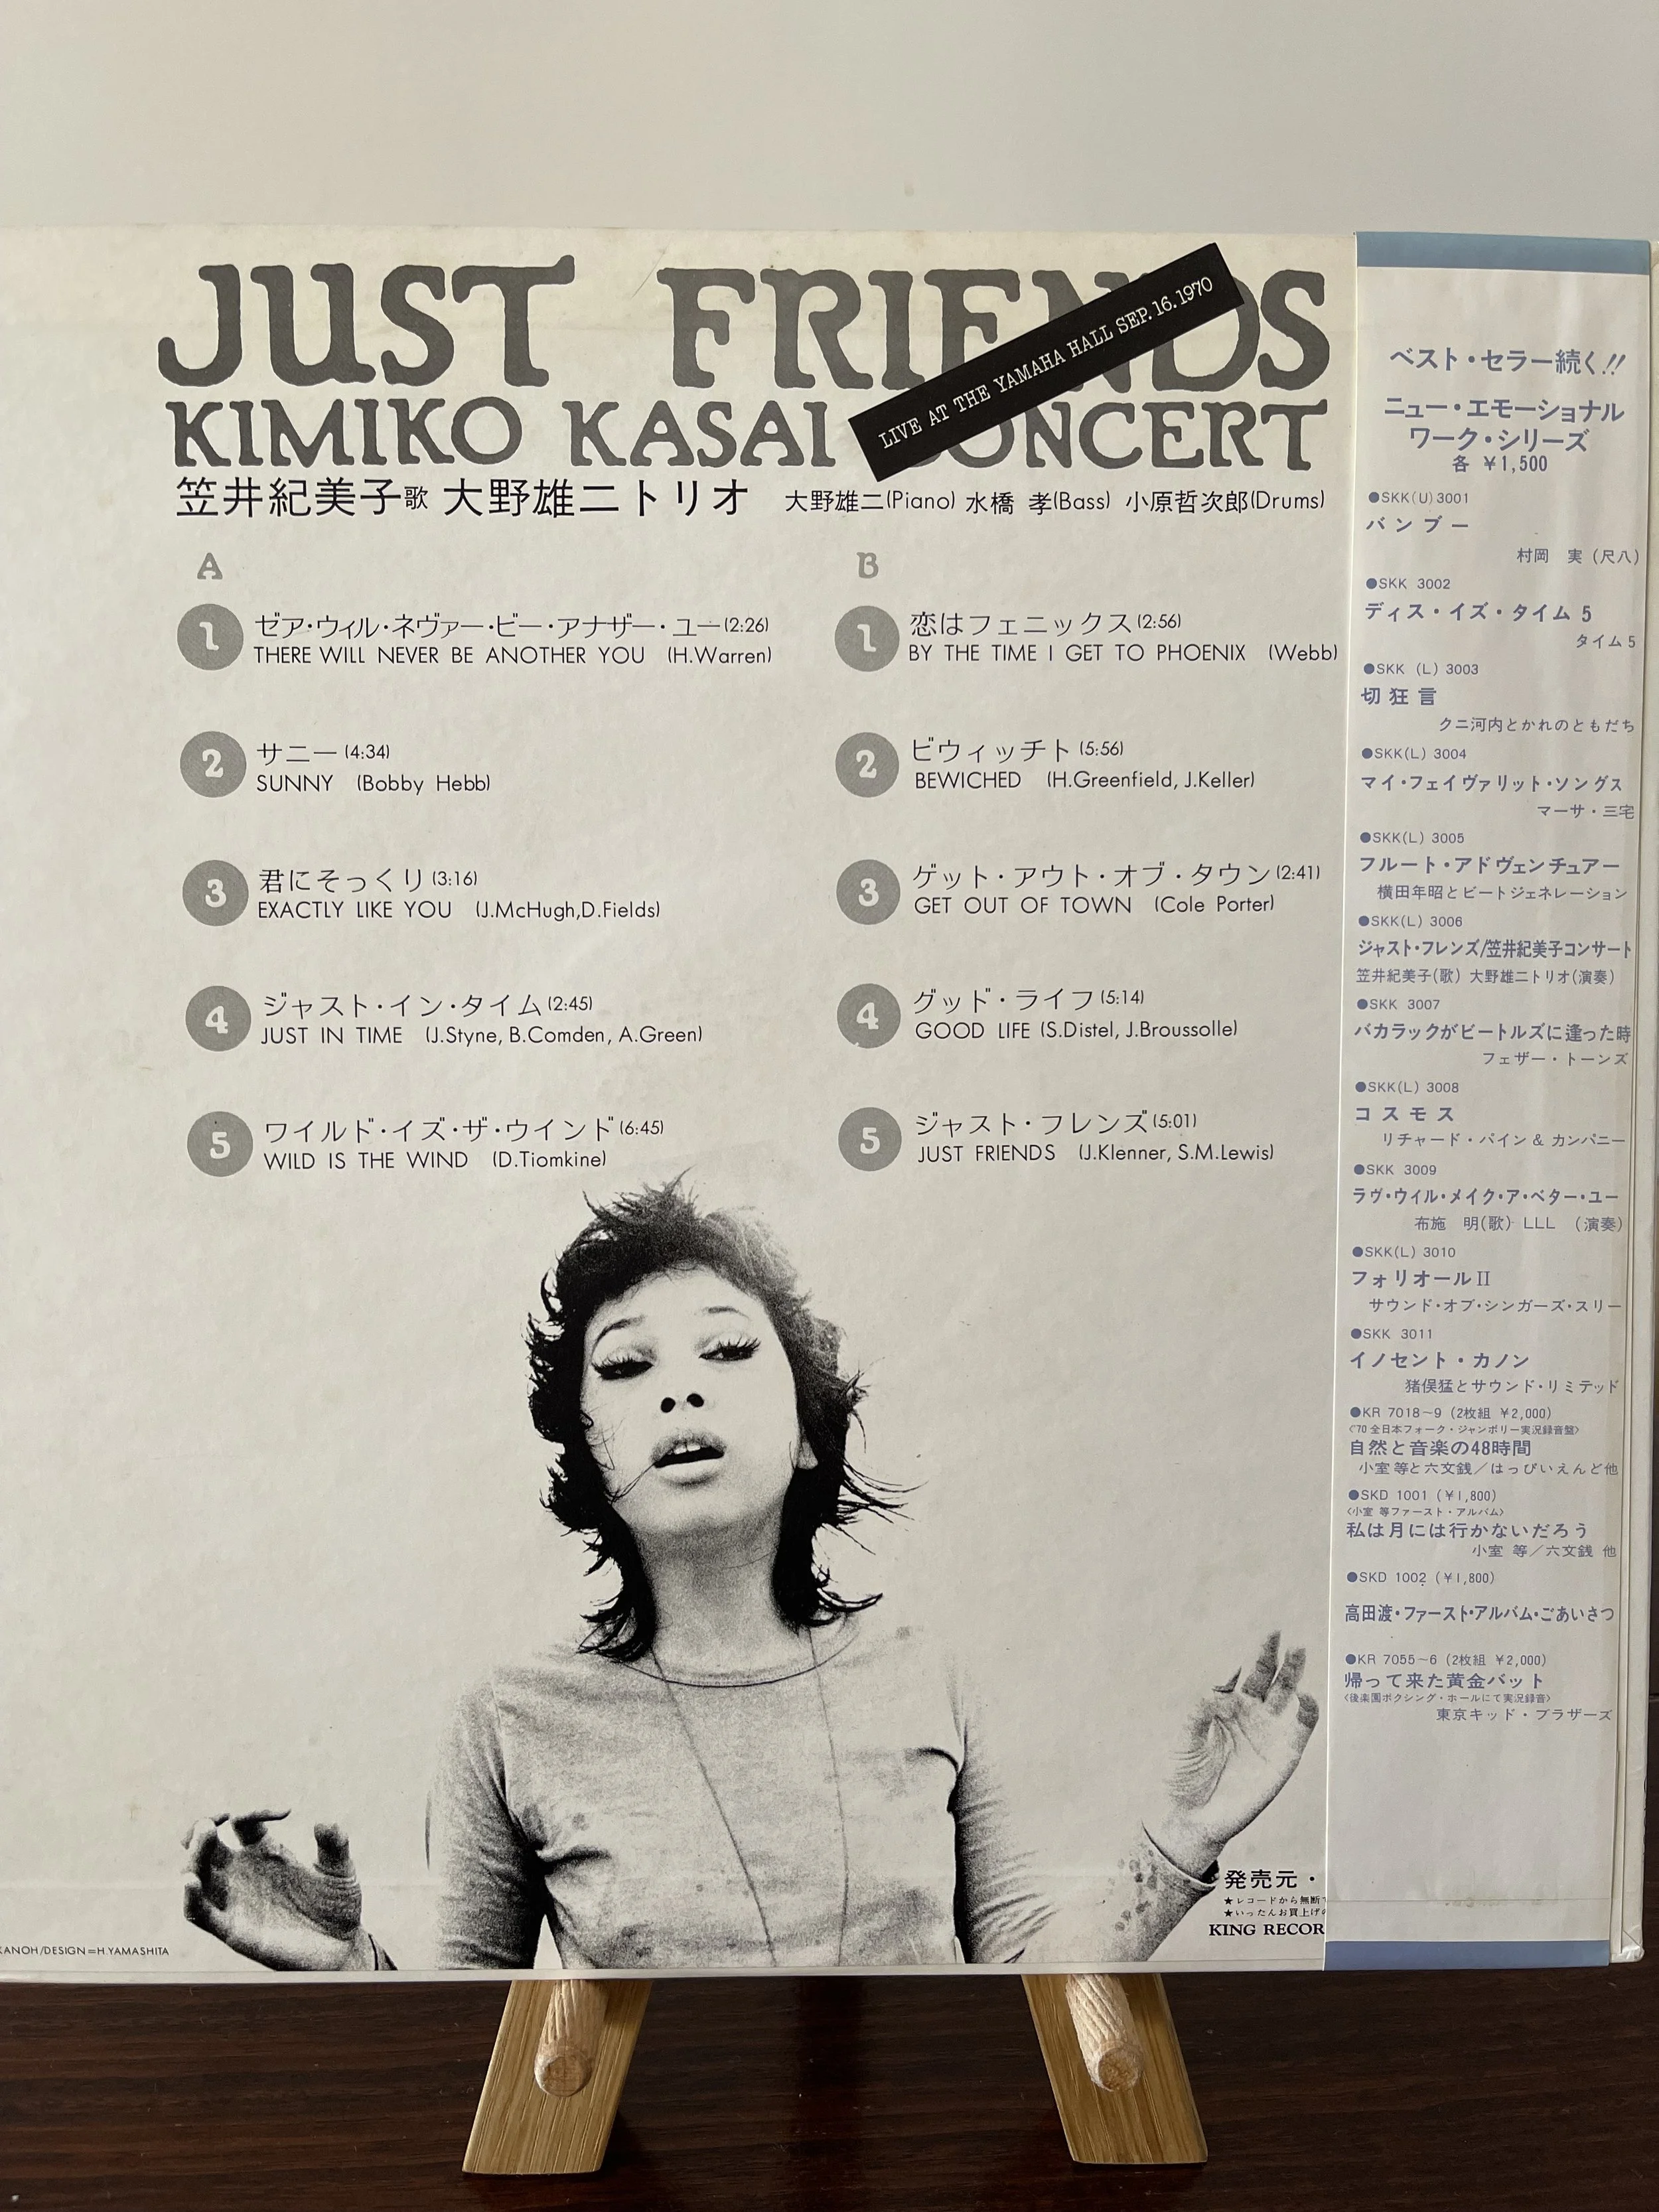 JUST FRIENDS
LIVE AT THE YAMAHA HALL SEP.16.1970
KIMIKO KASAI CONCERT
笠井紀美子歌 大野雄二トリオ 大野雄二(Piano) 水橋 孝(Bass) 小原哲次郎(Drums)
A
1 ゼア・ウィル・ネヴァー・ビー・アナザー・ユー(2:26)
THERE WILL NEVER BE ANOTHER YOU (H.Warren)
2 サニー(4:34)
SUNNY (Bobby Hebb)
3 君にそっくり(3:16)
EXACTLY LIKE YOU (J.McHugh,D.Fields)
4 ジャスト・イン・タイム(2:45)
JUST IN TIME (J.Styne, B.Comden, A.Green)
5 ワイルド・イズ・ザ・ウインド(6:45)
WILD IS THE WIND (D.Tiomkine)
B
1 恋はフェニックス(2:56)
BY THE TIME I GET TO PHOENIX (Webb)
2 ビウィッチト(5:56)
BEWICHED (H.Greenfield, J.Keller)
3 ゲット・アウト・オブ・タウン(2:41)
GET OUT OF TOWN (Cole Porter)
4 グッド・ライフ(5:14)
GOOD LIFE (S.Distel, J.Broussolle)
5 ジャスト・フレンズ(5:01)
JUST FRIENDS (J.Klenner, S.M.Lewis)
KANOH/DESIGN=H.YAMASHITA
発売元・
★レコードから無断
★いったんお買上げの
KING RECOR
ベスト・セラー続く!!
ニュー・エモーショナル
ワーク・シリーズ
各 ¥1,500
●SKK(U)3001
バンブー
村岡 実(尺八)
●SKK 3002
ディス・イズ・タイム 5
タイム 5
●SKK (L) 3003
切狂言
クニ河内とかれのともだち
●SKK(L) 3004
マイ・フェイヴァリット・ソングス
マーサ・三宅
●SKK(L) 3005
フルート・アドヴェンチュアー
横田年昭とビートジェネレーション
●SKK(L) 3006
ジャスト・フレンズ/笠井紀美子コンサート
笠井紀美子(歌) 大野雄二トリオ(演奏)
●SKK 3007
バカラックがビートルズに逢った時
フェザー・トーンズ
●SKK(L) 3008
コスモス
リチャード・パイン & カンパニー
●SKK 3009
ラヴ・ウィル・メイク・ア・ベター・ユー
布施 明(歌) LLL (演奏)
●SKK(L) 3010
フォリオールII
サウンド・オブ・シンガーズ・スリー
●SKK 3011
イノセント・カノン
猪俣猛とサウンド・リミテッド
●KR 7018~9 (2枚組 ¥2,000)
〈'70全日本フォーク・ジャンボリー実況録音盤〉
自然と音楽の48時間
小室等と六文銭/はっぴいえんど他
●SKD 1001 (¥1,800)
〈小室 等ファースト・アルバム〉
私は月には行かないだろう
小室 等/六文銭 他
●SKD 1002 (¥1,800)
高田渡・ファースト・アルバム・ごあいさつ
●KR 7055~6 (2枚組 ¥2,000)
帰って来た黄金バット
〈後楽園ボクシング・ホールにて実況録音〉
東京キッド・ブラザーズ